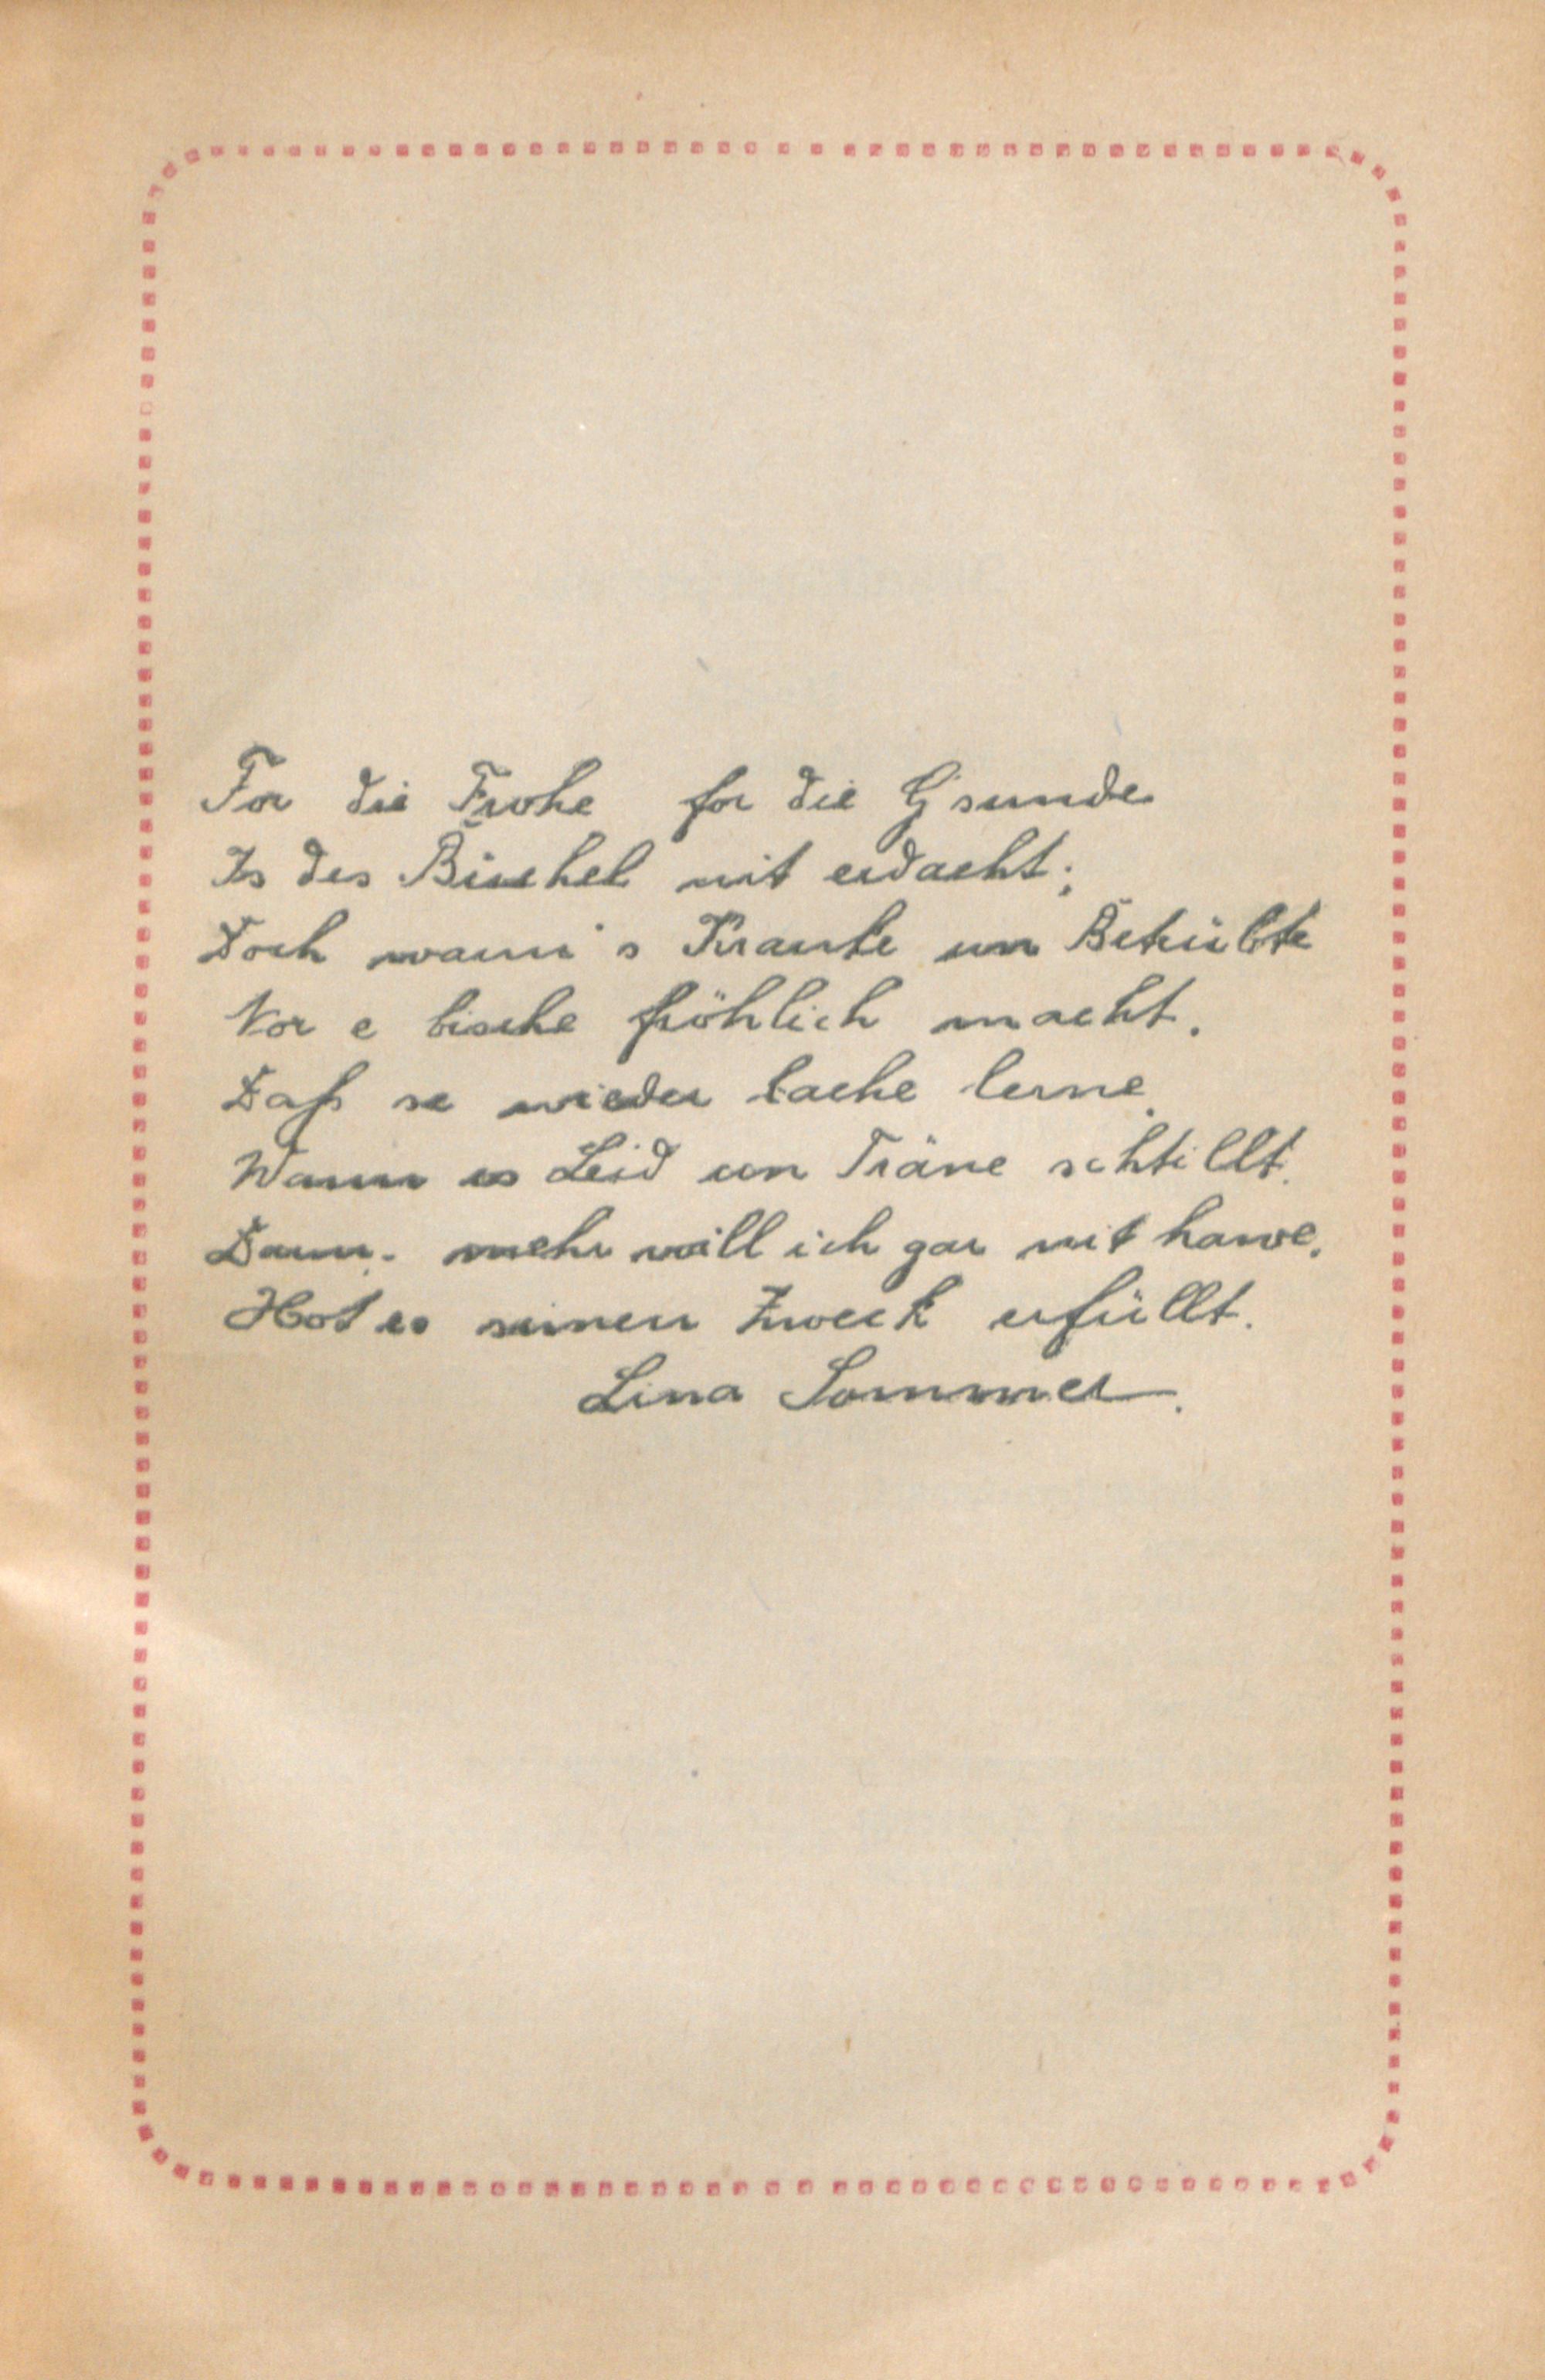 For die Frohe for die Gsunde
Is des Büchel nit erdacht;
Doch wann's Kranke un Betrübte
Nor e bische fröhlich macht.
Daß se wieder lache lerne
Wann es Leid un Träne schtillt.
Dann - mehr will ich gar nit hawe.
Hot es seinen Zweck erfüllt.
Lina Sommer.